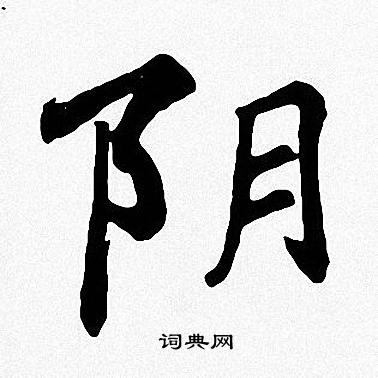 阴
词典网